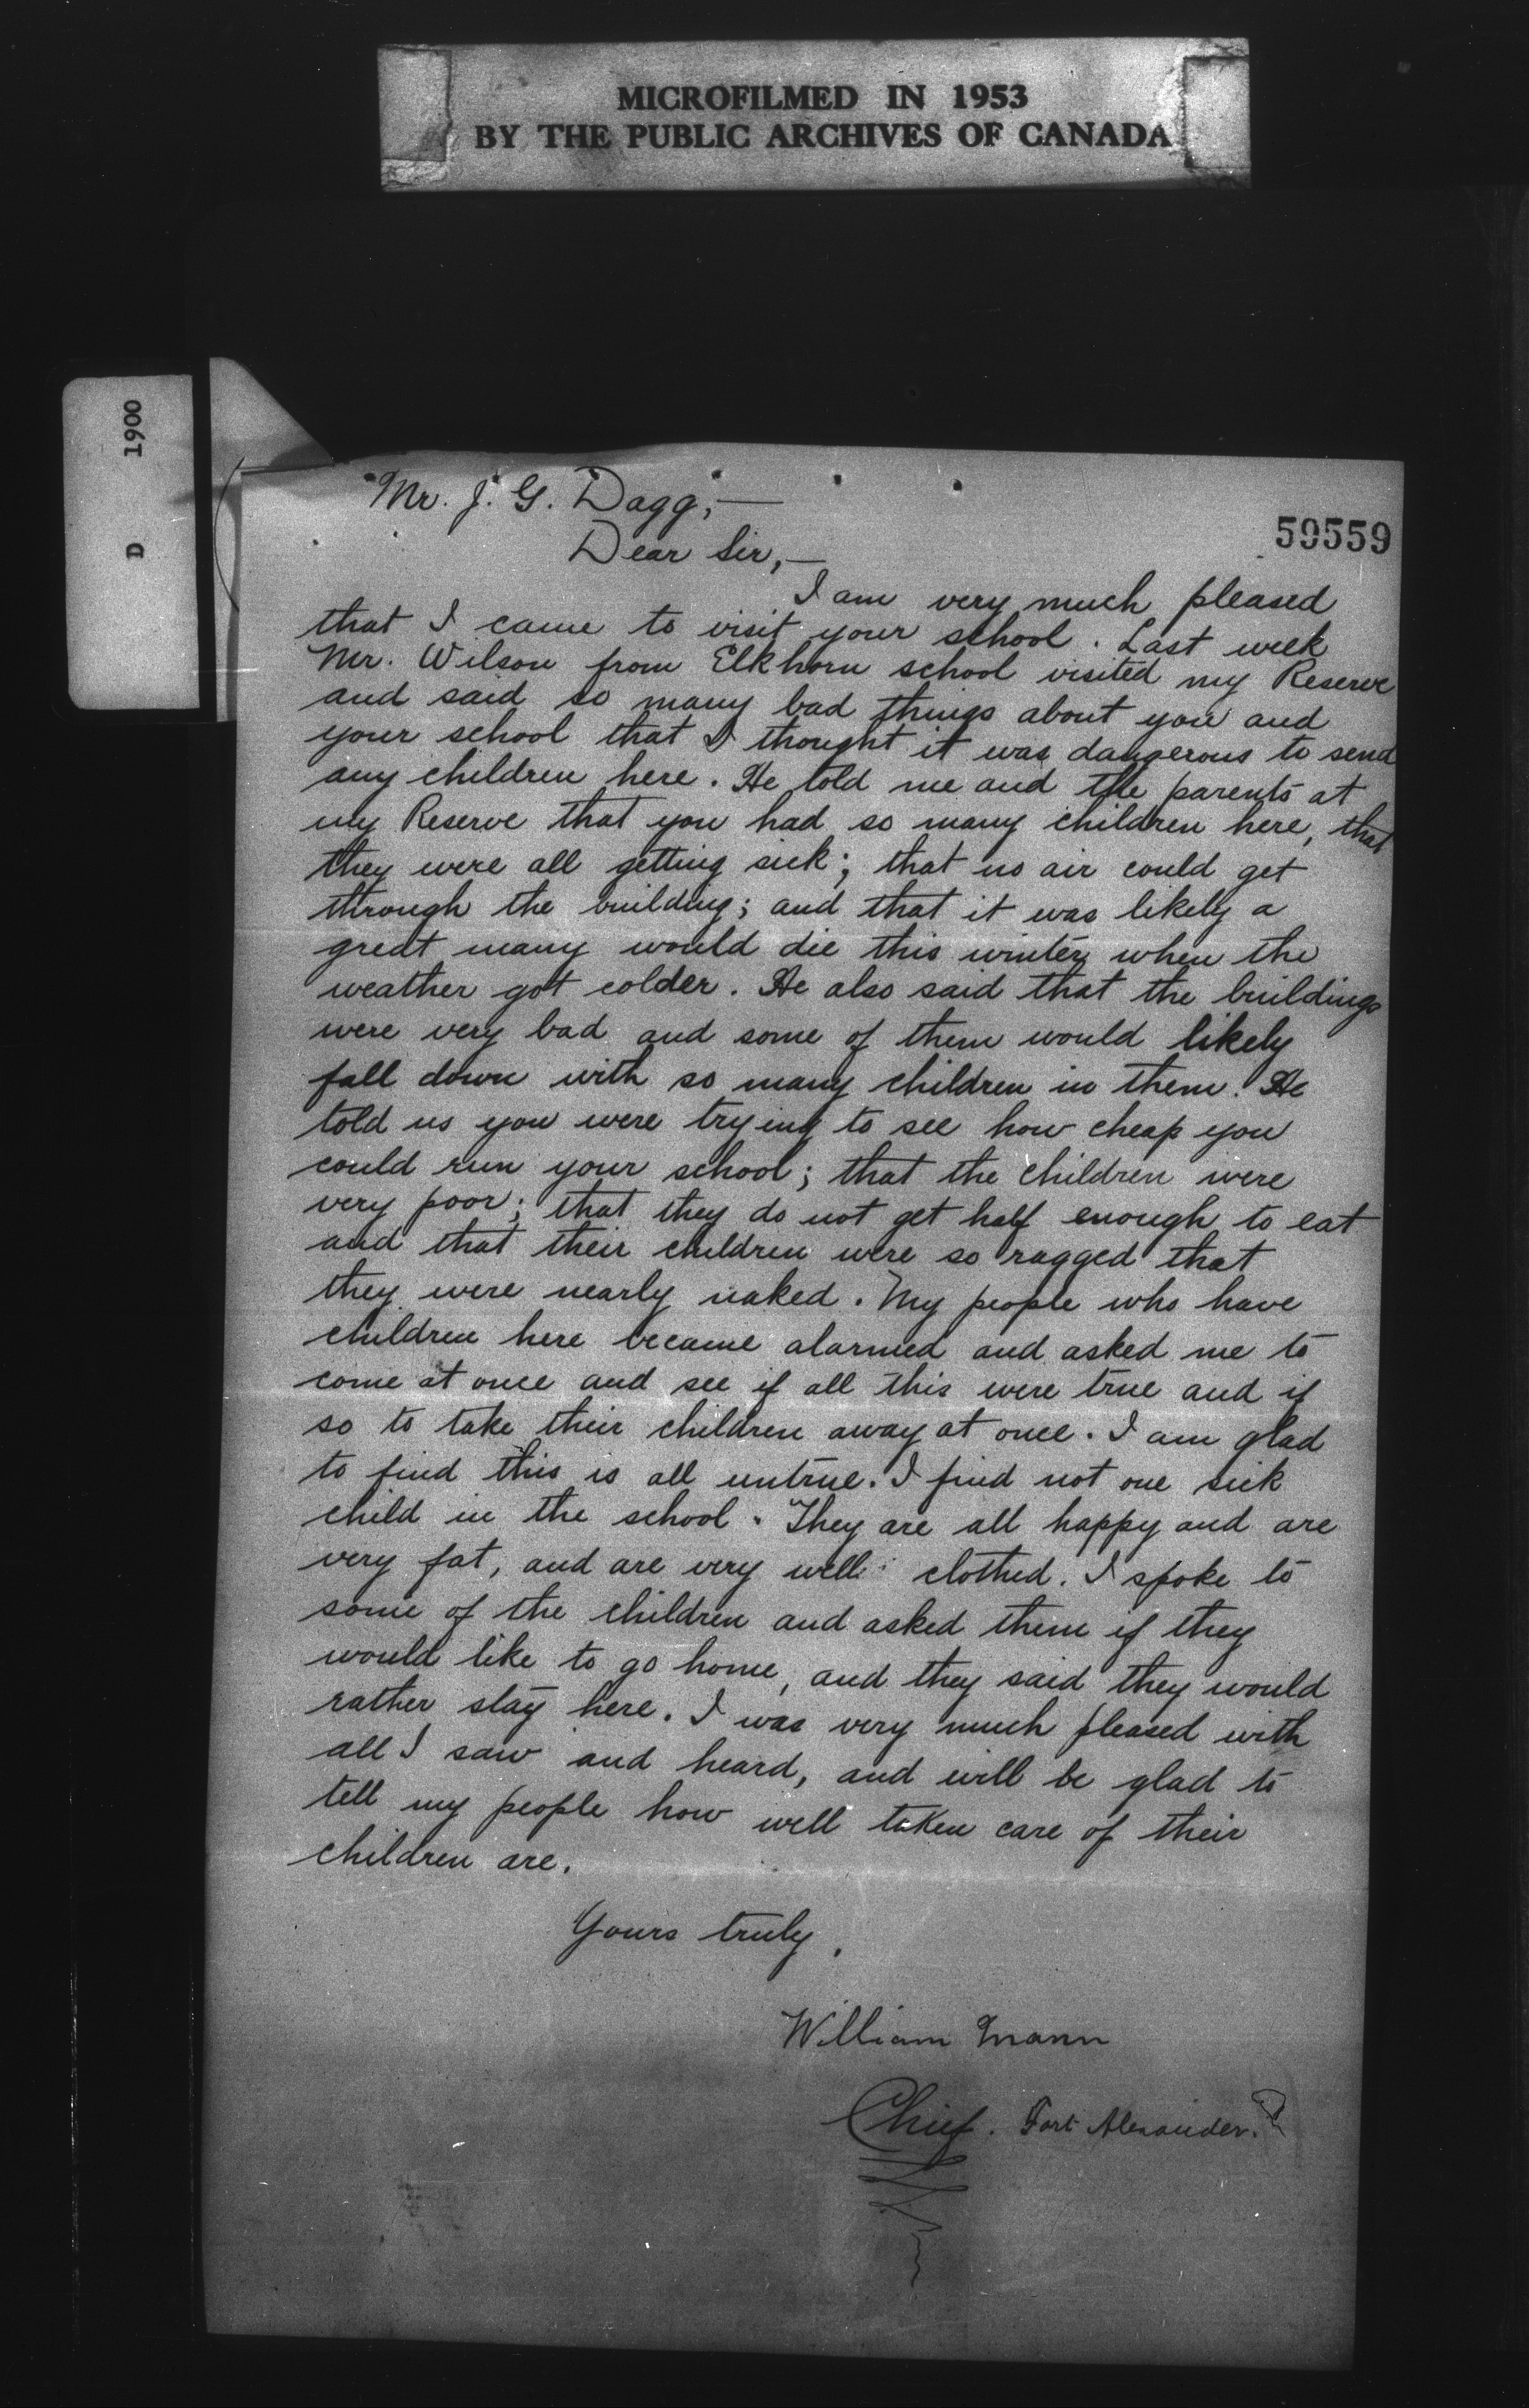 MICROFILMED IN 1953
BY THE PUBLIC ARCHIVES OF CANADA
D 1900
59559
Mr. J. G. Dagg,—
Dear Sir,—
I am very much pleased
that I came to visit your school. Last week
Mr. Wilson from Elkhorn school visited my Reserve
and said so many bad things about you and
your school that I thought it was dangerous to send
any children here. He told me and the parents at
my Reserve that you had so many children here, that
they were all getting sick; that no air could get
through the building; and that it was likely a
great many would die this winter when the
weather got colder. He also said that the buildings
were very bad and some of them would likely
fall down with so many children in them. He
told us you were trying to see how cheap you
could run your school; that the children were
very poor; that they do not get half enough to eat
and that their children were so ragged that
they were nearly naked. My people who have
children here became alarmed and asked me to
come at once and see if all this were true and if
so to take their children away at once. I am glad
to find this is all untrue. I find not one sick
child in the school. They are all happy and are
very fat, and are very well clothed. I spoke to
some of the children and asked them if they
would like to go home, and they said they would
rather stay here. I was very much pleased with
all I saw and heard, and will be glad to
tell my people how well taken care of their
children are.
Yours truly,
William Mann
Chief. Fort Alexander.